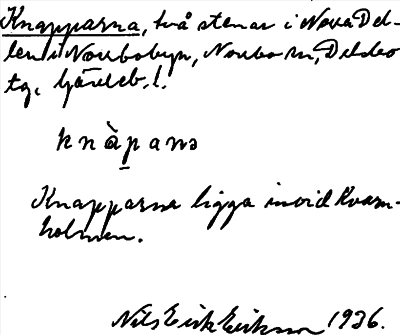 Knapparna, två stenar i Norra Del-
len i Norrbobyn, Norrbo sn, Delsbo
tg, Gävleb. l.
knàpanə
Knapparna ligga invid Kvarn-
holmen.
Nils Erik Eriksson 1936.